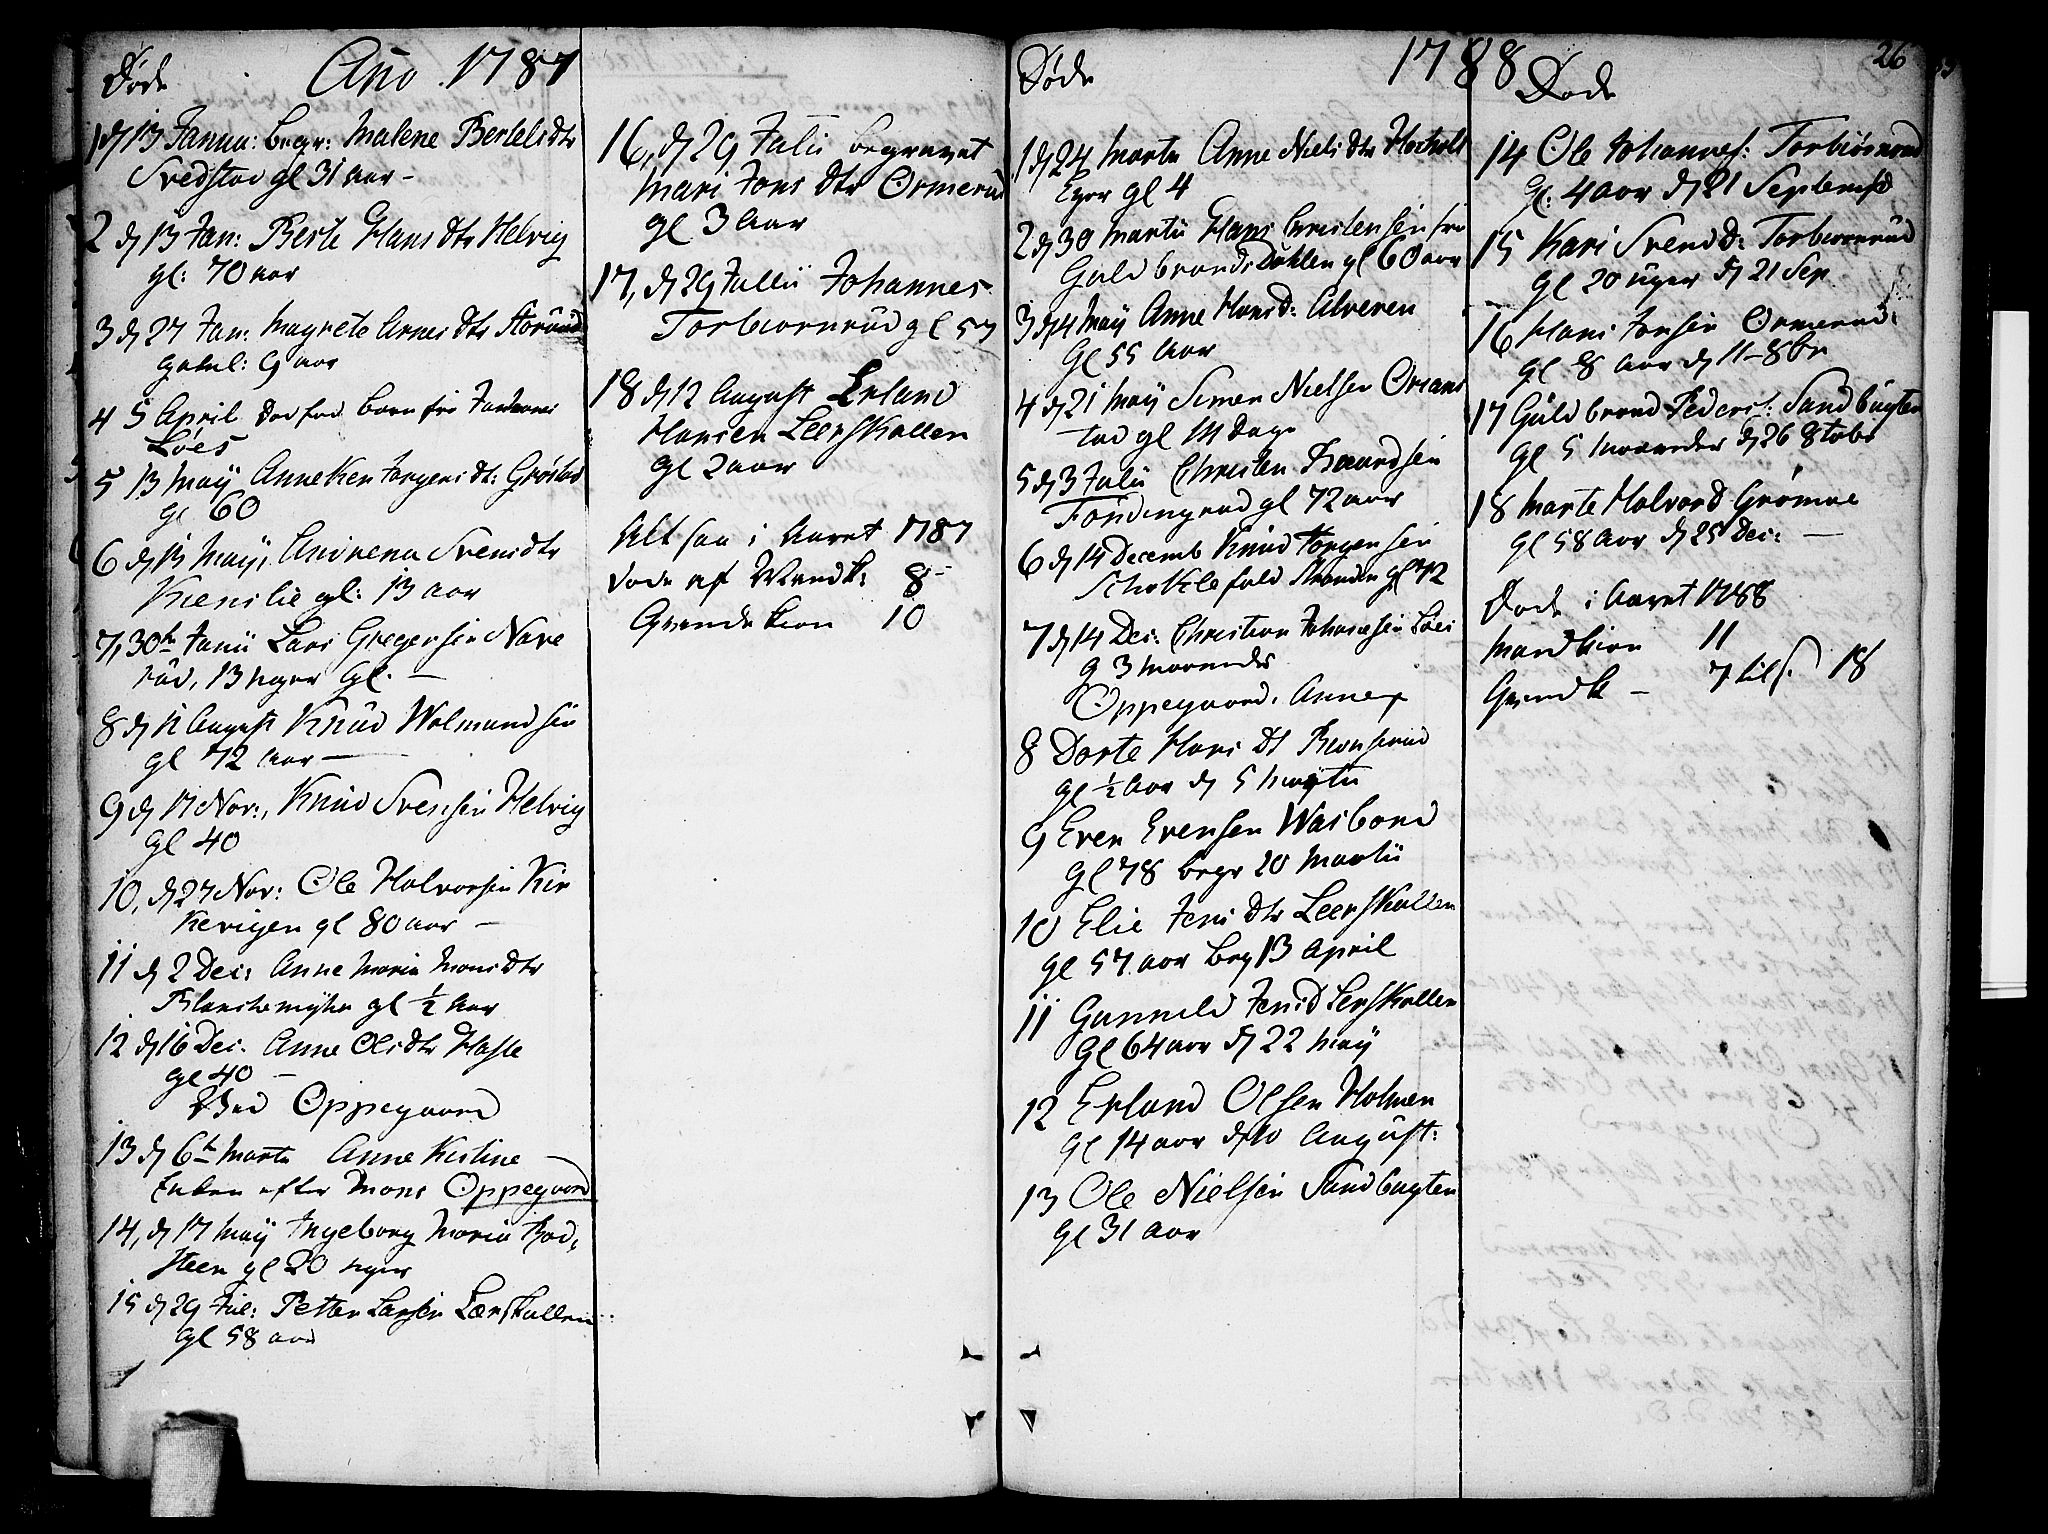 Døde Ano 1787
1 d 13 Janua: begr: Malene Bertels dtr
Svedstad gl 31 aar -
2 d 13 Jan: Berte Hans dtr Helvig
gl: 70 aar
3 d 27 Jan: Magrete Arnes dtr
gaml: 9 aar
4 5 April Dødfød barn fra
Løes
5 13 May Anneken Jørgens dt:
gl 60
6 d 13 May, Andrena Svens dtr
gl: 13 aar
7, 30te Junii Lars Gregersen Nare
rud, 13 uger gl. -
8 d 12 August Knud Wolmandsen
gl 72 aar -
9 d 17 Nov:, Knud Svensen Helvig
gl 40
10, d 27 Nov: Ole Halvorsen Kir
kevigen gl 80 aar -
11 d 2 Dec: Anne Maria Mons dtr
gl ½ aar
12 d 16 Dec. Anne Ols dtr Hasle
gl 40 -
Ved Oppegaard
13 d 6te Marti Anne Kirstine
Enken efter Mons Oppegaard
14, d 17 May Ingeborg Maria
steen gl 20 uger
15 d 29 Jul: Petter Larsen Lærskallen
gl 58 aar
16, d 29 Julii begravet
Mari Jons dtr Ormerud
gl 3 aar
17, d 29 Julii Johannes
Torbiørnrud gl 57
18 d 12 August Erland
Hansen Leerskallen
gl 2 aar
Alt saa i Aaret 1787
døde af Mandk: 8 -
Qvindekion 10
Døde 1788
1 d 24 Martii Anne Niels dtr
Eger gl 4
2 d 30 Martii Hans Christensen fra
Guldbrandsdahlen gl 60 aar
3 d 4 May Anne Hans d: Alveren
gl 55 aar
4 d 21 May Simen Nielsen
stad gl 14 dage
5 d 3 Julii Christen
gl 72 aar
6 d 14 Decemb Knud Jørgensen
gl 72
7 d 14 Dec: Christian Johannesen Løes
g 3 maaneder
Oppegaard. Annex
8 Dorte Hans dt
gl ½ aar d 5 Martii
9 Even Evensen Wasbond
gl 78 begr 20 Martii
10 Elie Jens dtr Leerskallen
gl 57 aar beg 13 April
11 Gunnild Jens D Lerskallen
gl 64 aar d 22 May
12 Erland Olsen Holmen
gl 14 aar d 10 August:
13 Ole Nielsen Sandbugten
gl 31 aar
Døde
26
14 Ole Johannes: Torbiørnrud
gl: 4 aar d 21 Septemb
15 Kari Svend D: Torbiørnrud
gl 20 uger d 21 Sep
16 Hans Jonsen Ormerud:
gl 8 aar d 11 - 8br
17 Guldbrand Peders: Sandbugten
gl 5 maaneder d 26 8tobr
18 Marte Halvord
gl 58 aar d 25 Dec: -
Døde i Aaret 1788
Mandkion 11
Qvindk - 7 tils. 18